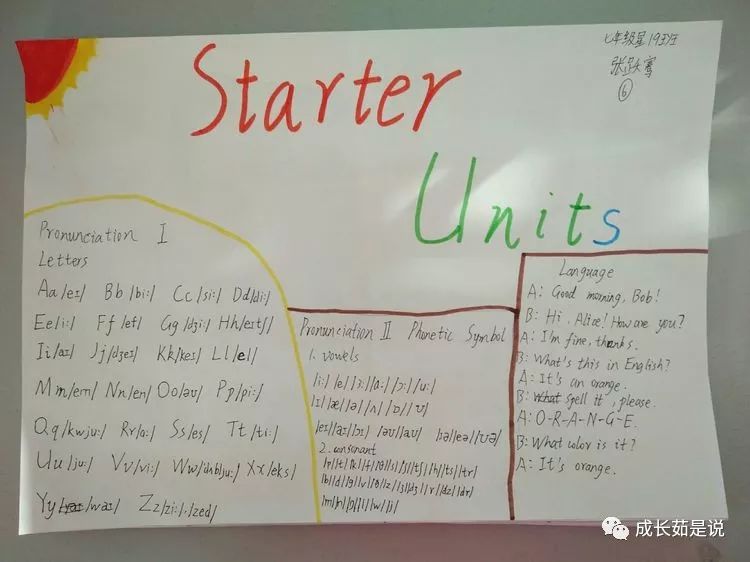 Starter
Units
七年级星19班
⑥
Pronunciation I
Letters
Aa/eɪ/ Bb/biː/ Cc/siː/ Dd/diː/
Ee/iː/ Ff/ef/ Gg/dʒiː/ Hh/eɪtʃ/
Ii/aɪ/ Jj/dʒeɪ/ Kk/keɪ/ Ll/el/
Mm/em/ Nn/en/ Oo/əʊ/ Pp/piː/
Qq/kwjuː/ Rr/ɑː/ Ss/es/ Tt/tiː/
Uu/juː/ Vv/viː/ Ww/ˈdʌbljuː/ Xx/eks/
Yy/waɪ/ Zz/ziː/,/zed/
Pronunciation II Phonetic Symbol
1. vowels
/iː/ /e/ /ɜː/ /ɑː/ /ɔː/ /uː/
/ɪ/ /æ/ /ə/ /ʌ/ /ɒ/ /ʊ/
/eɪ/ /aɪ/ /ɔɪ/ /əʊ/ /aʊ/ /ɪə/ /eə/ /ʊə/
2. consonant
/p/ /t/ /k/ /f/ /θ/ /s/ /ʃ/ /tʃ/ /h/ /ts/ /tr/
/b/ /d/ /g/ /v/ /ð/ /z/ /ʒ/ /dʒ/ /r/ /dz/ /dr/
/m/ /n/ /ŋ/ /l/ /w/ /j/
Language
A: Good morning, Bob!
B: Hi, Alice! How are you?
A: I'm fine, thanks.
B: What's this in English?
A: It's an orange.
B: What Spell it, please.
A: O-R-A-N-G-E.
B: What color is it?
A: It's orange.
成长茹是说